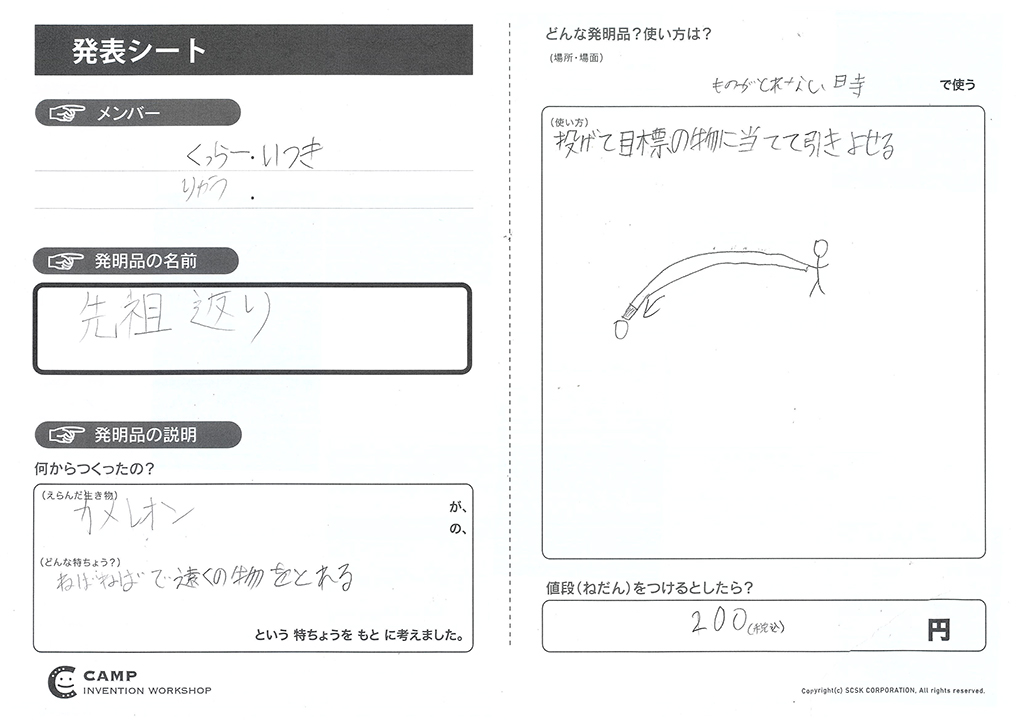 発表シート
メンバー
くっらー・いつき
りゅう
発明品の名前
先祖返り
発明品の説明
何からつくったの？
（えらんだ生き物）
カメレオン
が、
の、
（どんな特ちょう？）
ねばねばで遠くの物をとれる
という 特ちょうを もと に考えました。
CAMP
INVENTION WORKSHOP
どんな発明品？使い方は？
（場所・場面）
ものがとれない時
で使う
（使い方）
投げて目標の物に当てて引きよせる
値段（ねだん）をつけるとしたら？
200（税込）
円
Copyright(c) SCSK CORPORATION, All rights reserved.